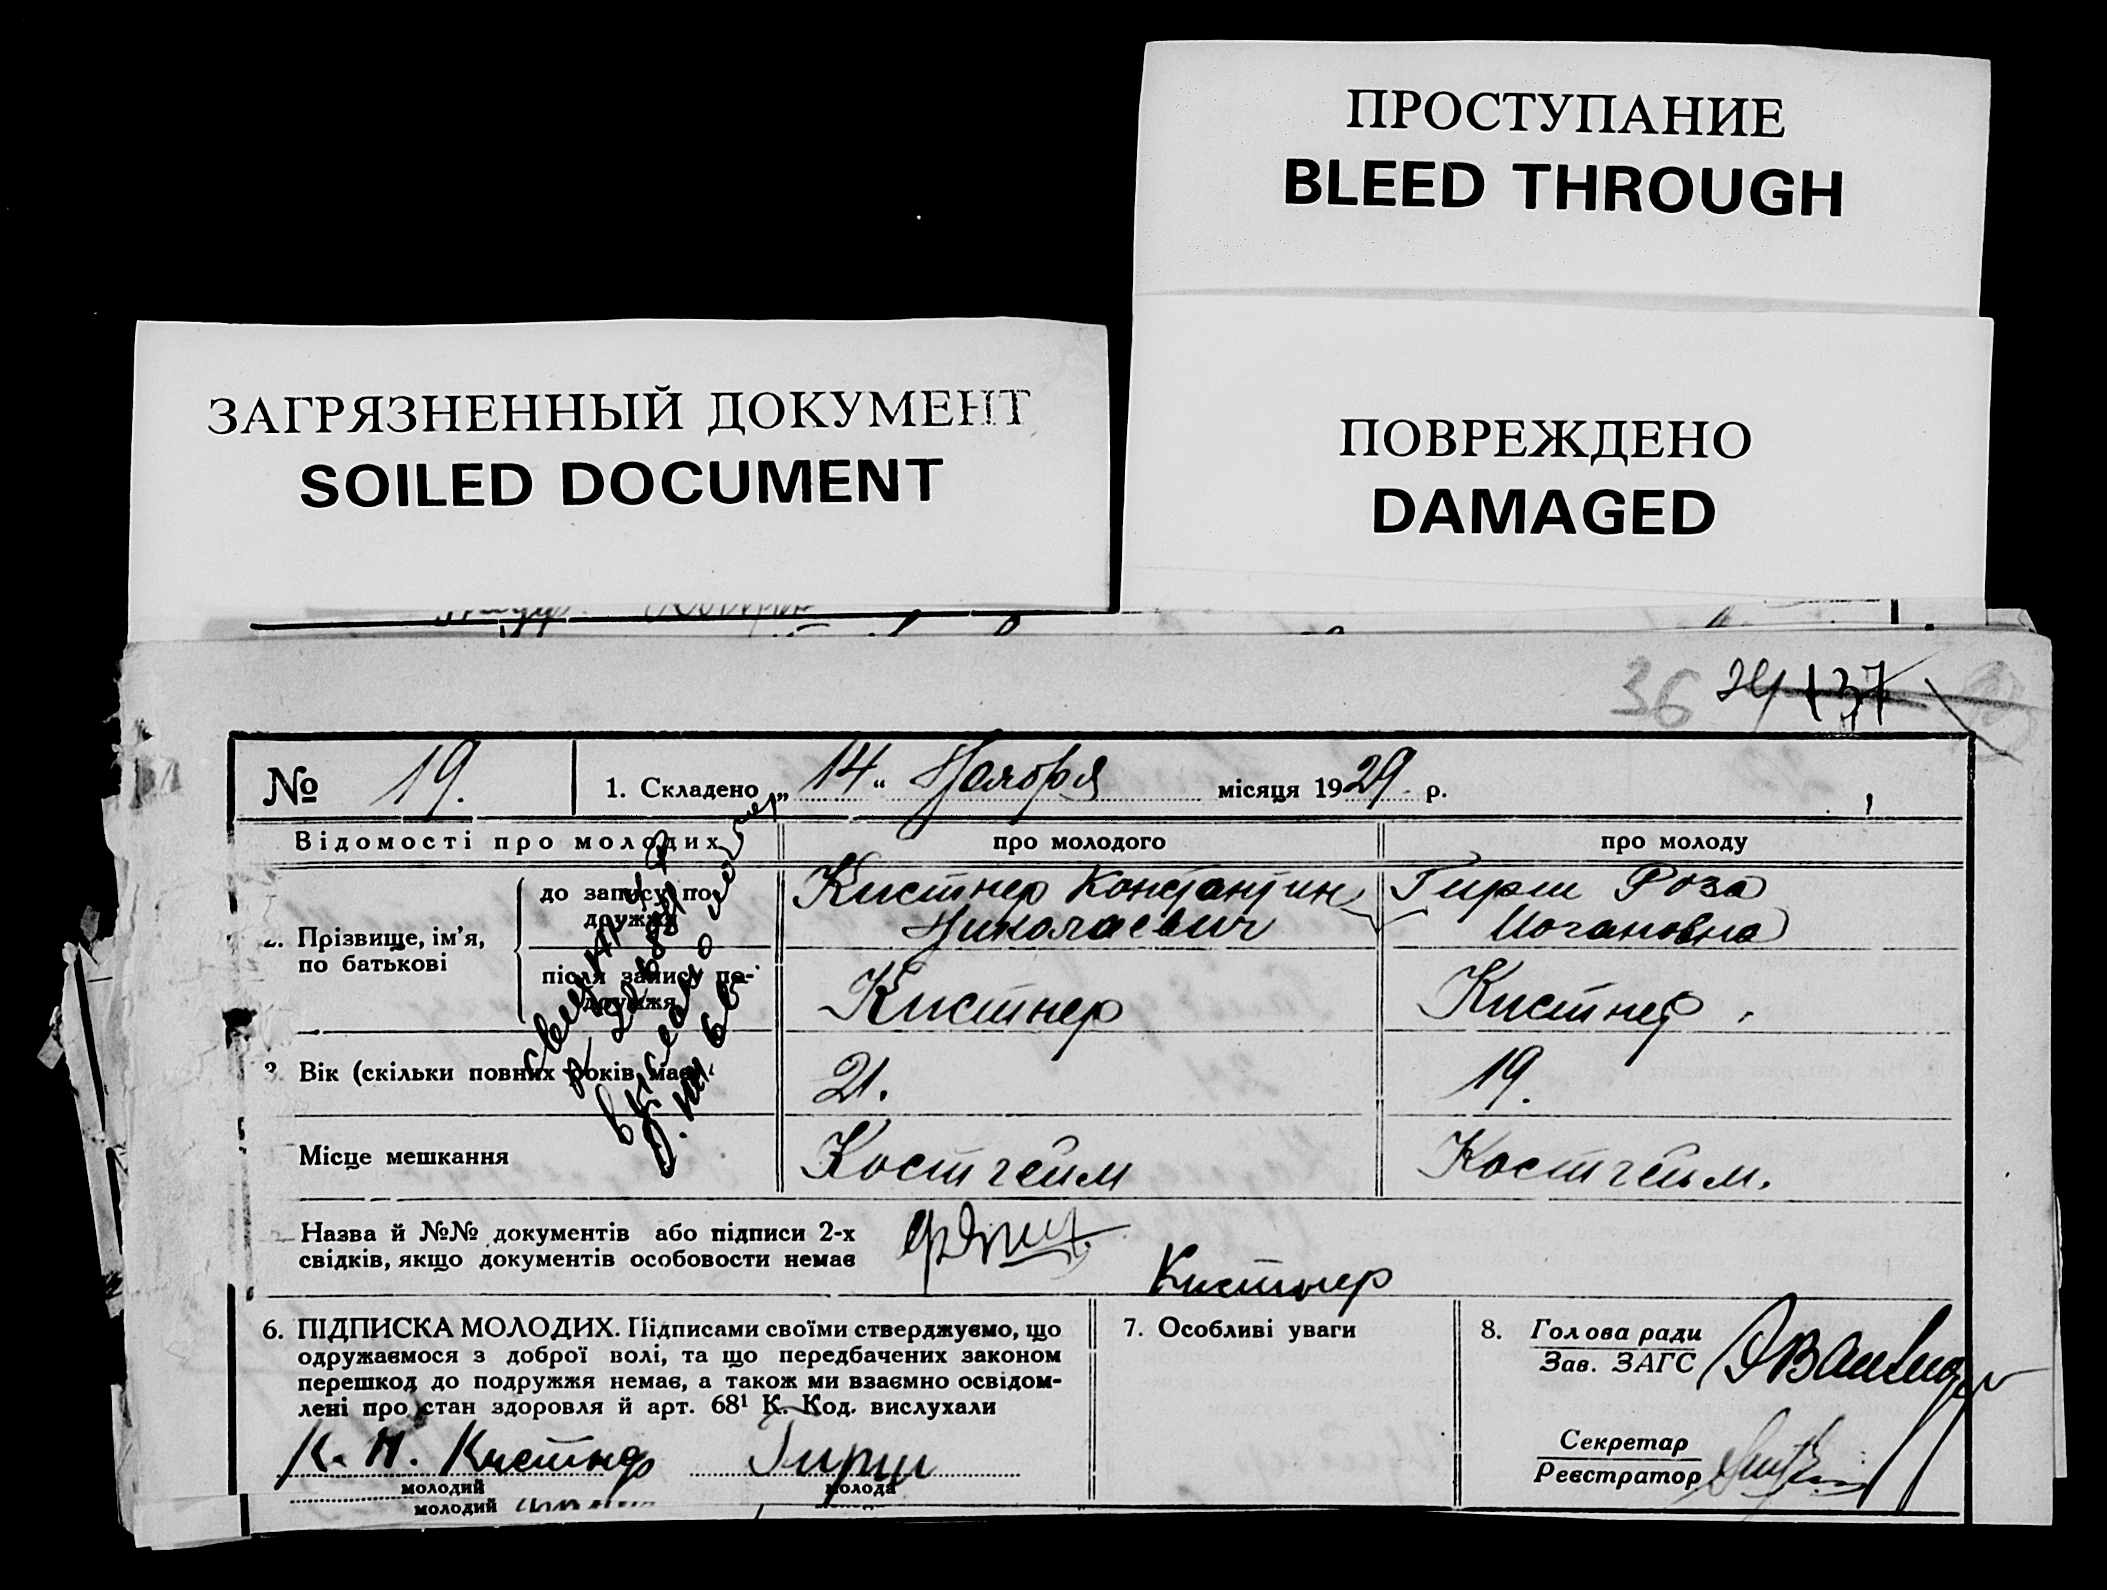 ПРОСТУПАНИЕ
BLEED THROUGH
ЗАГРЯЗНЕННЫЙ ДОКУМЕНТ
SOILED DOCUMENT
ПОВРЕЖДЕНО
DAMAGED
36 24 137
№ 19. 1. Складено „ 14 “ Ноября місяця 1929 р.
Відомості про молодих
про молодого
про молоду
2. Прізвище, ім’я,
по батькові
до запису по-
дружжя
Кистнер Константин
Николаевич
Гирш Роза
Иогановна
після запису по-
дружжя
Кистнер
Кистнер
3. Вік (скільки повних років має)
21.
19.
Місце мешкання
Костгейм
Костгейм.
Назва й №№ документів або підписи 2-х
свідків, якщо документів особовости немає
Кистнер
6. ПІДПИСКА МОЛОДИХ. Підписами своїми стверджуємо, що
одружаємося з доброї волі, та що передбачених законом
перешкод до подружжя немає, а також ми взаємно освідом-
лені про стан здоровля й арт. 68¹ К. Код. вислухали
К. Н. Кистнер Гирш
молодий молода
молодий
7. Особливі уваги
8. Голова ради
Зав. ЗАГС
Секретар
Реєстратор